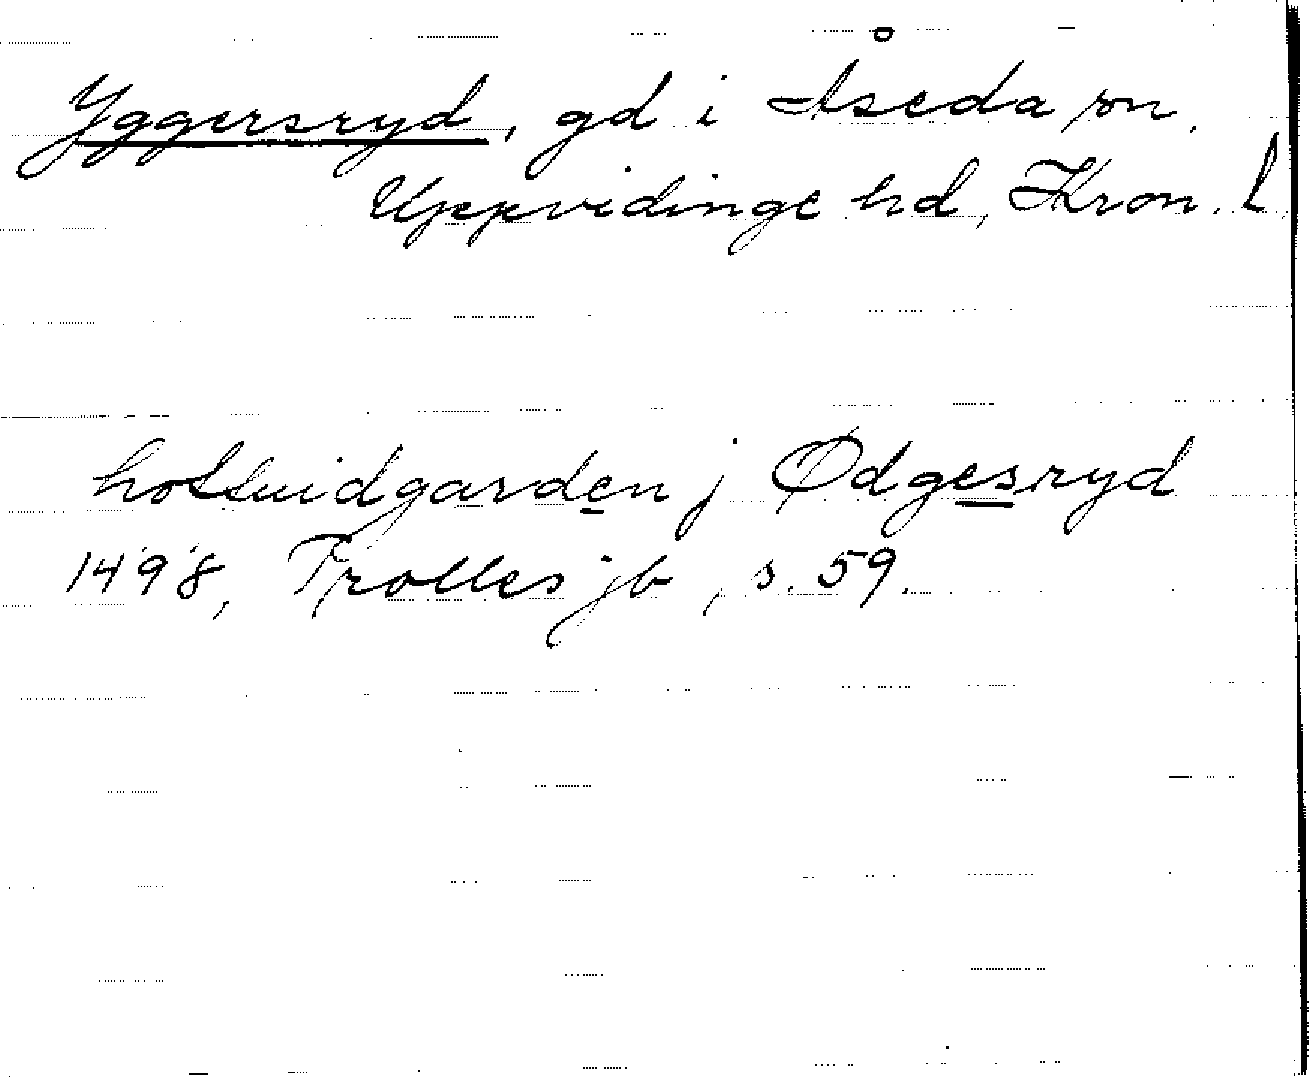 Yggersryd, gd i Åseda sn,
Uppvidinge hd, Kron. l.
hoffuidgarden j Ødgesryd
1498, Trolles jb, s. 59.